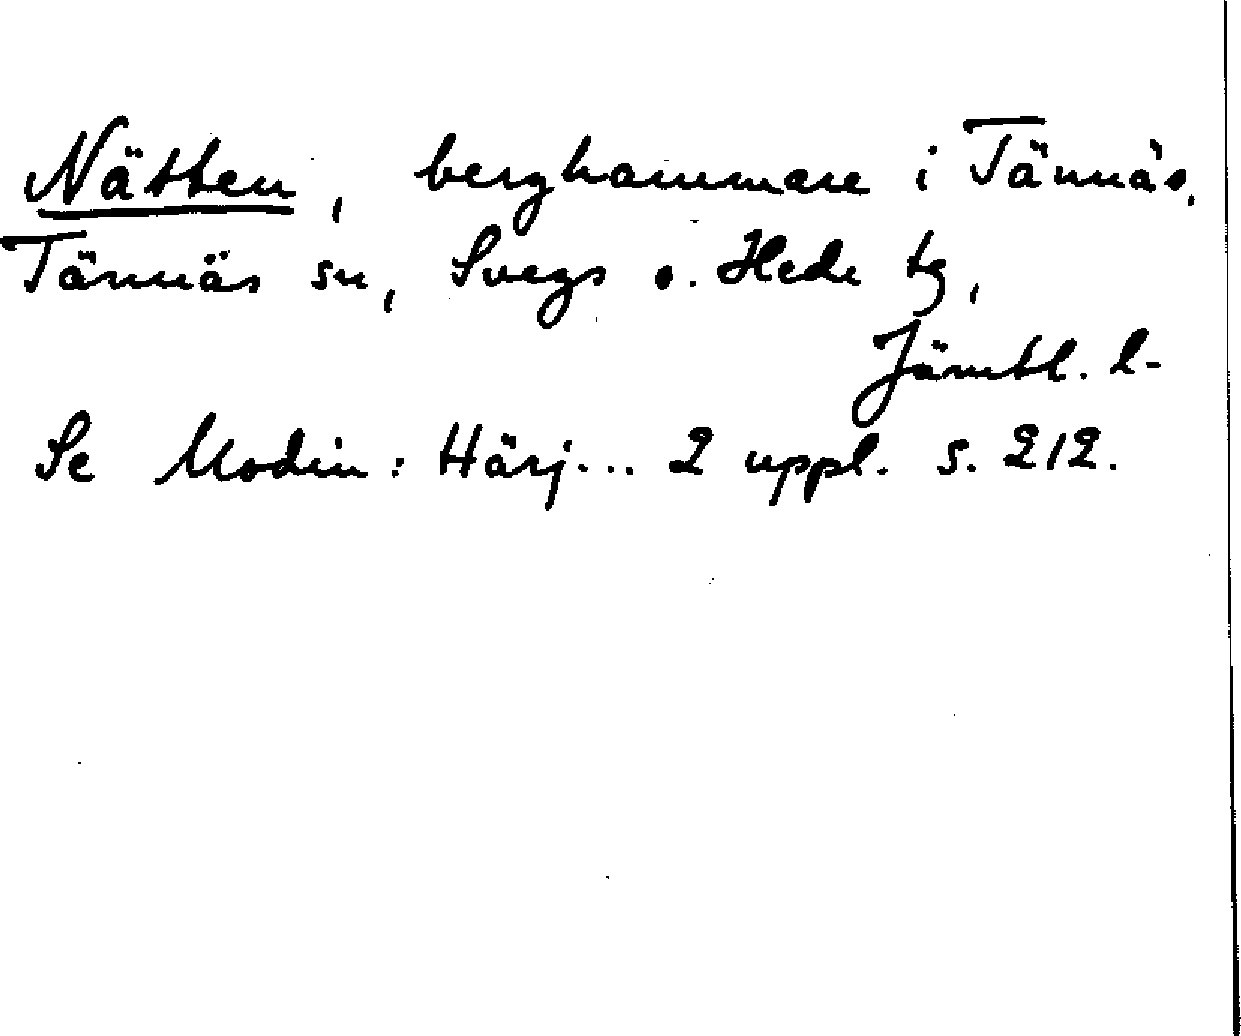 Nätten, berghammare i Tännäs,
Tännäs sn, Svegs o. Hede tg,
Jämtl. l.
Se Modin: Härj... 2 uppl. s. 212.